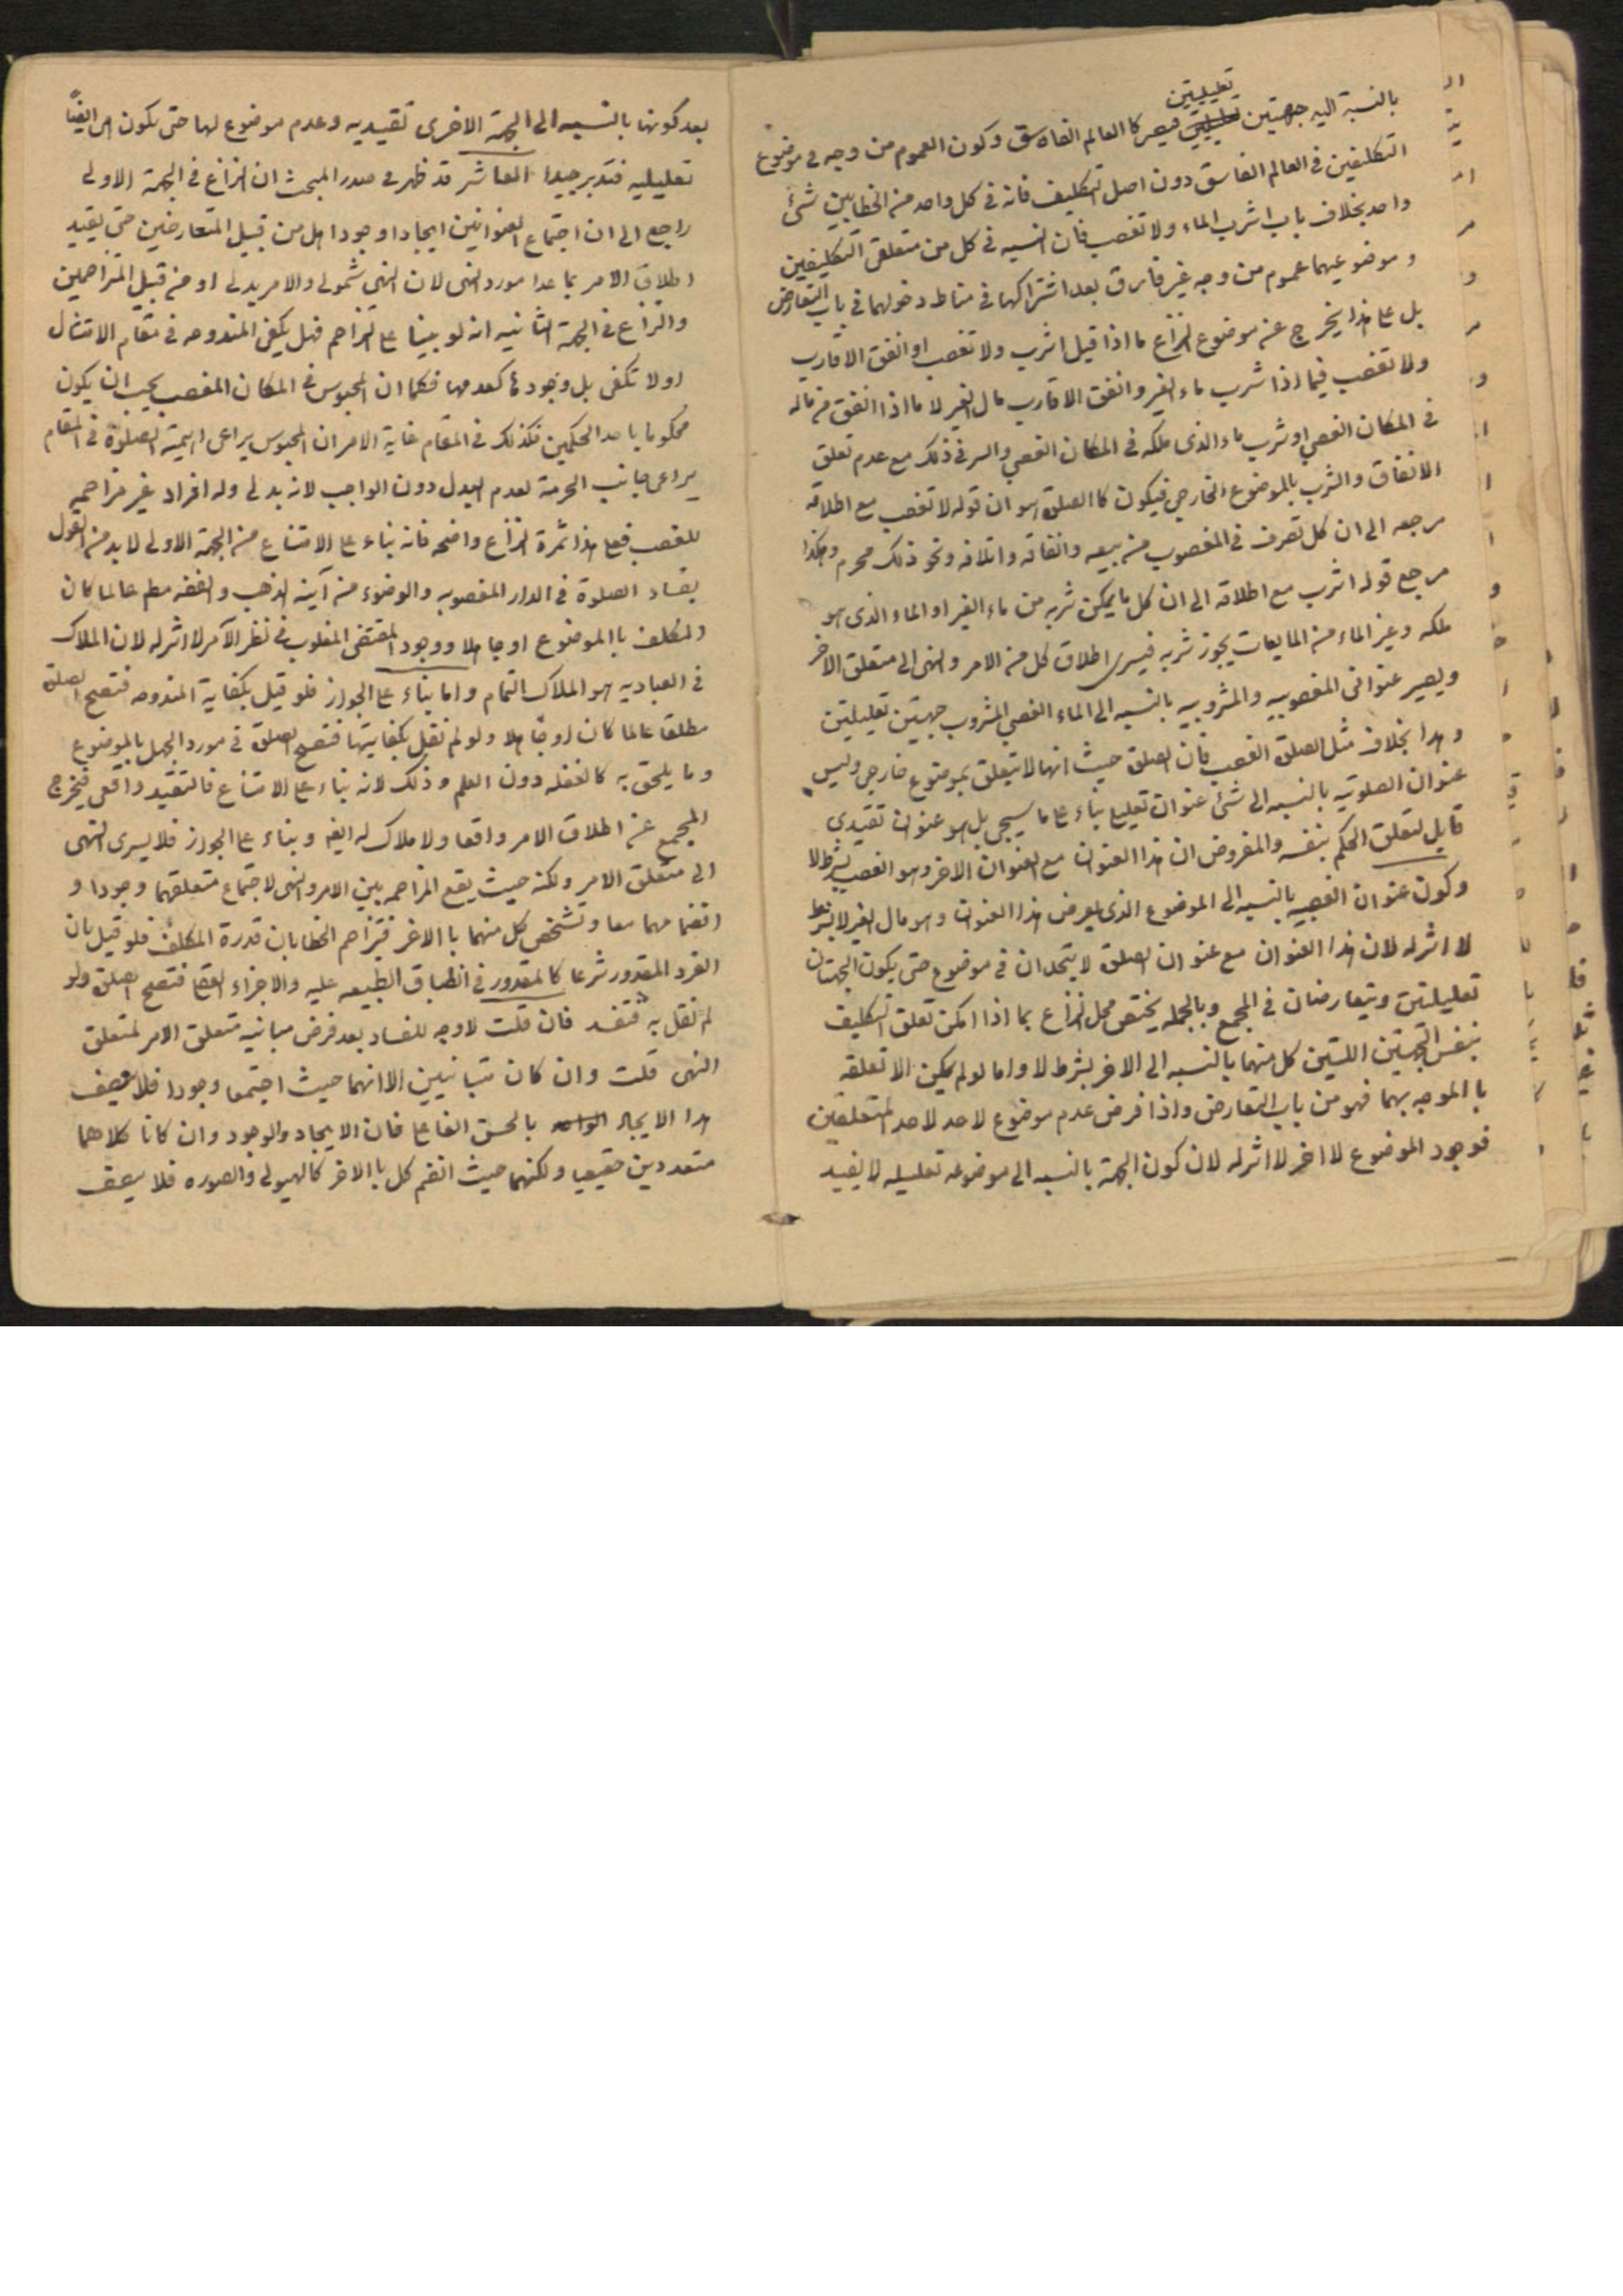 تعليليتين
بالنسبة اليه جهتين تعليليتين فيصير كا العالم الفاسق وكون العموم من وجه في موضوع
التكليفين في العالم الفاسق دون اصل التكليف فانه في كل واحد من الخطابين شئ
واحد بخلاف باب اشرب الماء ولا تغصب فان النسبه في كل من متعلقى التكليفين
و موضوعيهما عموم من وجه غير فارق بعد اشتراكها في مناط دخولهما في باب التعارض
بل على هذا يخرج عن موضوع النزاع ما اذا قيل اشرب ولا تغصب او انفق الاقارب
ولا تغصب فيما اذا شرب ماء الغير وانفق الاقارب مال الغير لا ما اذا انفق من ماله
في المكان الغصبي او شرب ماء الذى ملكه في المكان الغصبي والسر في ذلك مع عدم تعلق
الانفاق والشرب بالموضوع الخارجي فيكون كا الصلوة هو ان قوله لا تغصب مع اطلاقه
مرجعه الى ان كل تصرف في المغصوب من بيعه وانفاقه واتلافه ونحو ذلك محرم وهكذا
مرجع قوله اشرب مع اطلاقه الى ان كل ما يمكن شربه من ماء الغير او الماء الذى هو
ملكه وغير الماء من المايعات يجوز شربه فيسرى اطلاق كل من الامر والنهى الى متعلق الاخر
ويصير عنوانى المغصوبيه والمشروبيه بالنسبه الى الماء الغصبي المشروب جهتين تعليليتين
وهذا بخلاف مثل الصلوة الغصب فان الصلوة حيث انها لا يتعلق بموضوع خارجي وليس
عنوان الصلوتيه بالنسبه الى شئ عنوان تعليلي بناء على ما سيجي بل هو عنوان تقيدي
قابل لتعلق الحكم بنفسه والمفروض ان هذا العنوان مع العنوان الاخر وهو الغصب بشرط لا
وكون عنوان الغصبيه بالنسبه الى الموضوع الذى يعرض هذا العنوان وهو مال الغير لا بشرط
لا اثر له لان هذا العنوان مع عنوان الصلوة لا يتحدان في موضوع حتى يكون الجهتان
تعليليتين ويتعارضان في المجمع وبالجمله يختص محل النزاع بما اذا امكن تعلق التكليف
بنفس الجهتين اللتين كل منهما بالنسبه الى الاخر بشرط لا واما لو لم يمكن الا تعلقه
با الموجه بهما فهو من باب التعارض واذا فرض عدم موضوع لاحد لاحد المتعلقين
فوجود الموضوع لا اخر لا اثر له لان كون الجهة بالنسبه الى موضوعه تعليليه لا يفيد
بعد كونها بالنسبه الى الجهة الاخرى تقيديه وعدم موضوع لها حتى يكون هى ايضًا
تعليليه فتدبر جيدا العاشر قد ظهر في صدر المبحث ان النزاع في الجهة الاولى
راجع الى ان اجتماع العنوانين ايجادا وجودا هل من قبيل المتعارضين حتى يقيد
اطلاق الامر بما عدا مورد النهى لان النهى شمولى والامر بدلى او من قبيل المتزاحمين
والنزاع في الجهة الثانيه انه لو بنينا على التزاحم فهل يكفى المندوحه في مقام الامتثال
او لا تكفى بل وجودها كعدمها فكما ان المحبوس في المكان المغصب يجب ان يكون
محكوما باحد الحكمين فكذلك في المقام غاية الامر ان المحبوس يراعى اهمية الصلوة في المقام
يراعى جانب الحرمة لعدم البدل دون الواجب لانه بدلى وله افراد غير مزاحمه
للغصب فعلى هذا ثمرة النزاع واضحه فانه بناء على الامتناع من الجهة الاولى لابد من القول
بفساد الصلوة في الدار المغصوبه والوضوء من آنية الذهب والفضه مطم عالما كان
المكلف با الموضوع او جاهلا ووجود المقتضى المغلوب في نظر الآمر لا اثر له لان الملاك
في العباديه هو الملاك التمام واما بناء على الجواز فلو قيل بكفاية المندوحه فتصح الصلوة
مطلقا عالما كان او جاهلا ولو لم نقل بكفايتها فتصح الصلوة في مورد الجهل بالموضوع
وما يلحق به كالغفله دون العلم وذلك لانه بناء على الامتناع فالتقيد واقعى فيخرج
المجمع عن اطلاق الامر واقعا ولا ملاك له ايضا وبناء على الجواز فلا يسرى النهى
الى متعلق الامر ولكنه حيث يقع المزاحمه بين الامر والنهى لاجتماع متعلقهما وجودا و
انضمامهما معا وتشخص كل منهما با الاخر فيتزاحم الخطابان قدرة المكلف فلو قيل بان
الفرد المقدور شرعا كا لمقدور في انطباق الطبيعه عليه والاجزاء العقلى فتصح الصلوة ولو
لم نقل به فتفسد فان قلت لا وجه للفساد بعد فرض مباينيه متعلق الامر لمتعلق
النهى قلت وان كان متباينين الا انهما حيث اجتمعا وجودا فلا يتصف
هذا الايجاد بالحسن الفاعلى فان الايجاد والوجود وان كانا كلاهما
متعددين حقيقيا ولكنهما حيث انضم كل با الاخر كالهيولى والصوره فلا يتصف